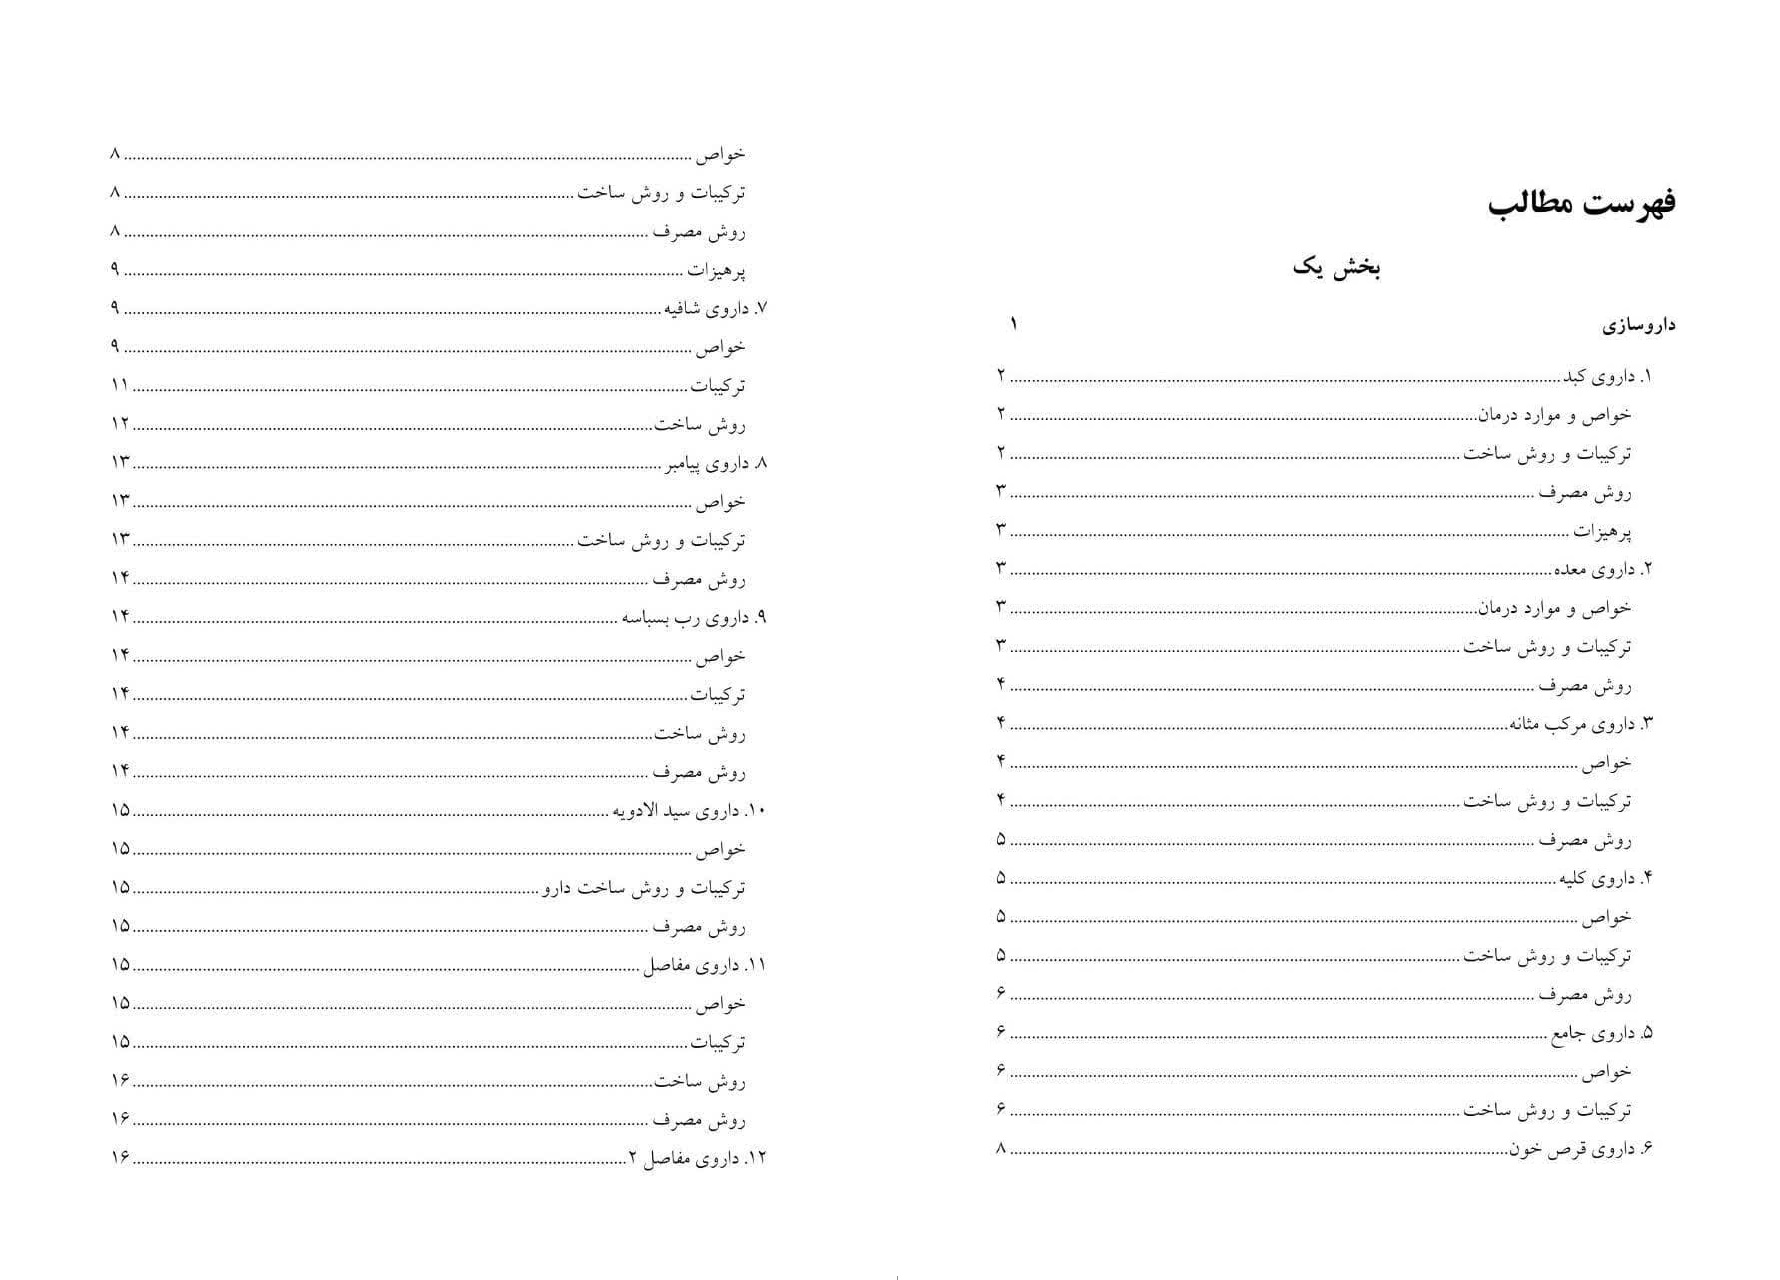 فهرست مطالب
بخش یک
داروسازی ۱
۱. داروی کبد ۲
خواص و موارد درمان ۲
ترکیبات و روش ساخت ۲
روش مصرف ۳
پرهیزات ۳
۲. داروی معده ۳
خواص و موارد درمان ۳
ترکیبات و روش ساخت ۳
روش مصرف ۴
۳. داروی مرکب مثانه ۴
خواص ۴
ترکیبات و روش ساخت ۴
روش مصرف ۵
۴. داروی کلیه ۵
خواص ۵
ترکیبات و روش ساخت ۵
روش مصرف ۶
۵. داروی جامع ۶
خواص ۶
ترکیبات و روش ساخت ۶
۶. داروی قرص خون ۸
خواص ۸
ترکیبات و روش ساخت ۸
روش مصرف ۸
پرهیزات ۹
۷. داروی شافیه ۹
خواص ۹
ترکیبات ۱۱
روش ساخت ۱۲
۸. داروی پیامبر ۱۳
خواص ۱۳
ترکیبات و روش ساخت ۱۳
روش مصرف ۱۴
۹. داروی رب بسباسه ۱۴
خواص ۱۴
ترکیبات ۱۴
روش ساخت ۱۴
روش مصرف ۱۴
۱۰. داروی سید الادویه ۱۵
خواص ۱۵
ترکیبات و روش ساخت دارو ۱۵
روش مصرف ۱۵
۱۱. داروی مفاصل ۱۵
خواص ۱۵
ترکیبات ۱۵
روش ساخت ۱۶
روش مصرف ۱۶
۱۲. داروی مفاصل ۲ ۱۶